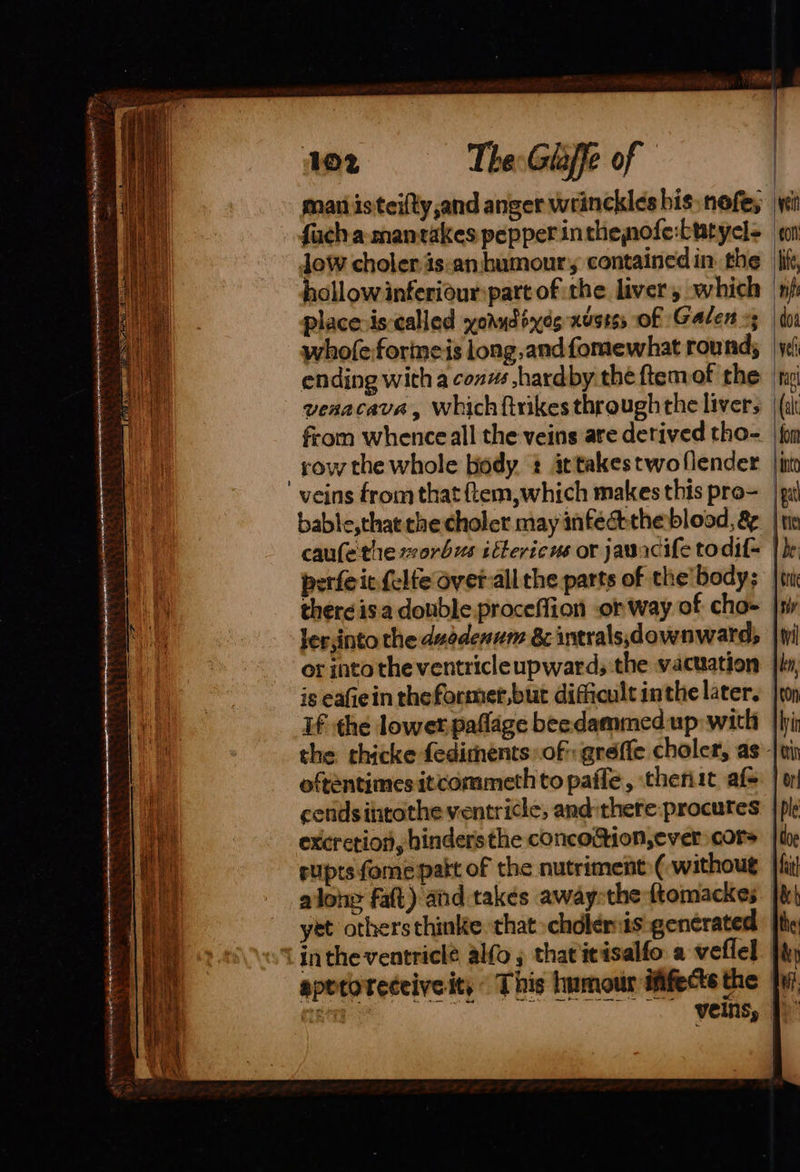 102 The Glaſſe of
man is teiſty, and anger wrinckles his noſe,
ſuch a man takes pepper in the noſe: but yel-
low choler is an humour, contained in the
hollow inferiour part of the liver, which
place is called χοληδόχος κύστις of Galen;
whoſe forme is long, and ſomewhat round,
ending with a conus, hard by the ſtem of the
vena cava, which ſtrikes through the liver,
from whence all the veins are derived tho-
row the whole body: it takes two ſlender
veins from that ſtem, which makes this pro-
bable, that the choler may infect the blood, &
cauſe the morbus ictericus or jaundiſe to diſ-
perſe it ſelfe over all the parts of the body:
there is a double proceſſion or way of cho-
ler, into the duodenum & intrals, downward,
or into the ventricle upward, the vacuation
is eaſie in the former, but difficult in the later.
If the lower paſſage bee dammed up with
the thicke ſediments of groſſe choler, as
oftentimes it commeth to paſſe, then it aſ-
cends into the ventricle, and there procures
excretion, hinders the concoction, ever cor-
rupts ſome part of the nutriment (without
a long faſt) and takes away the ſtomacke;
yet others thinke that choler is generated
in the ventricle alſo, that it is alſo a veſſel
apt to receive it, This humour infects the
veins,